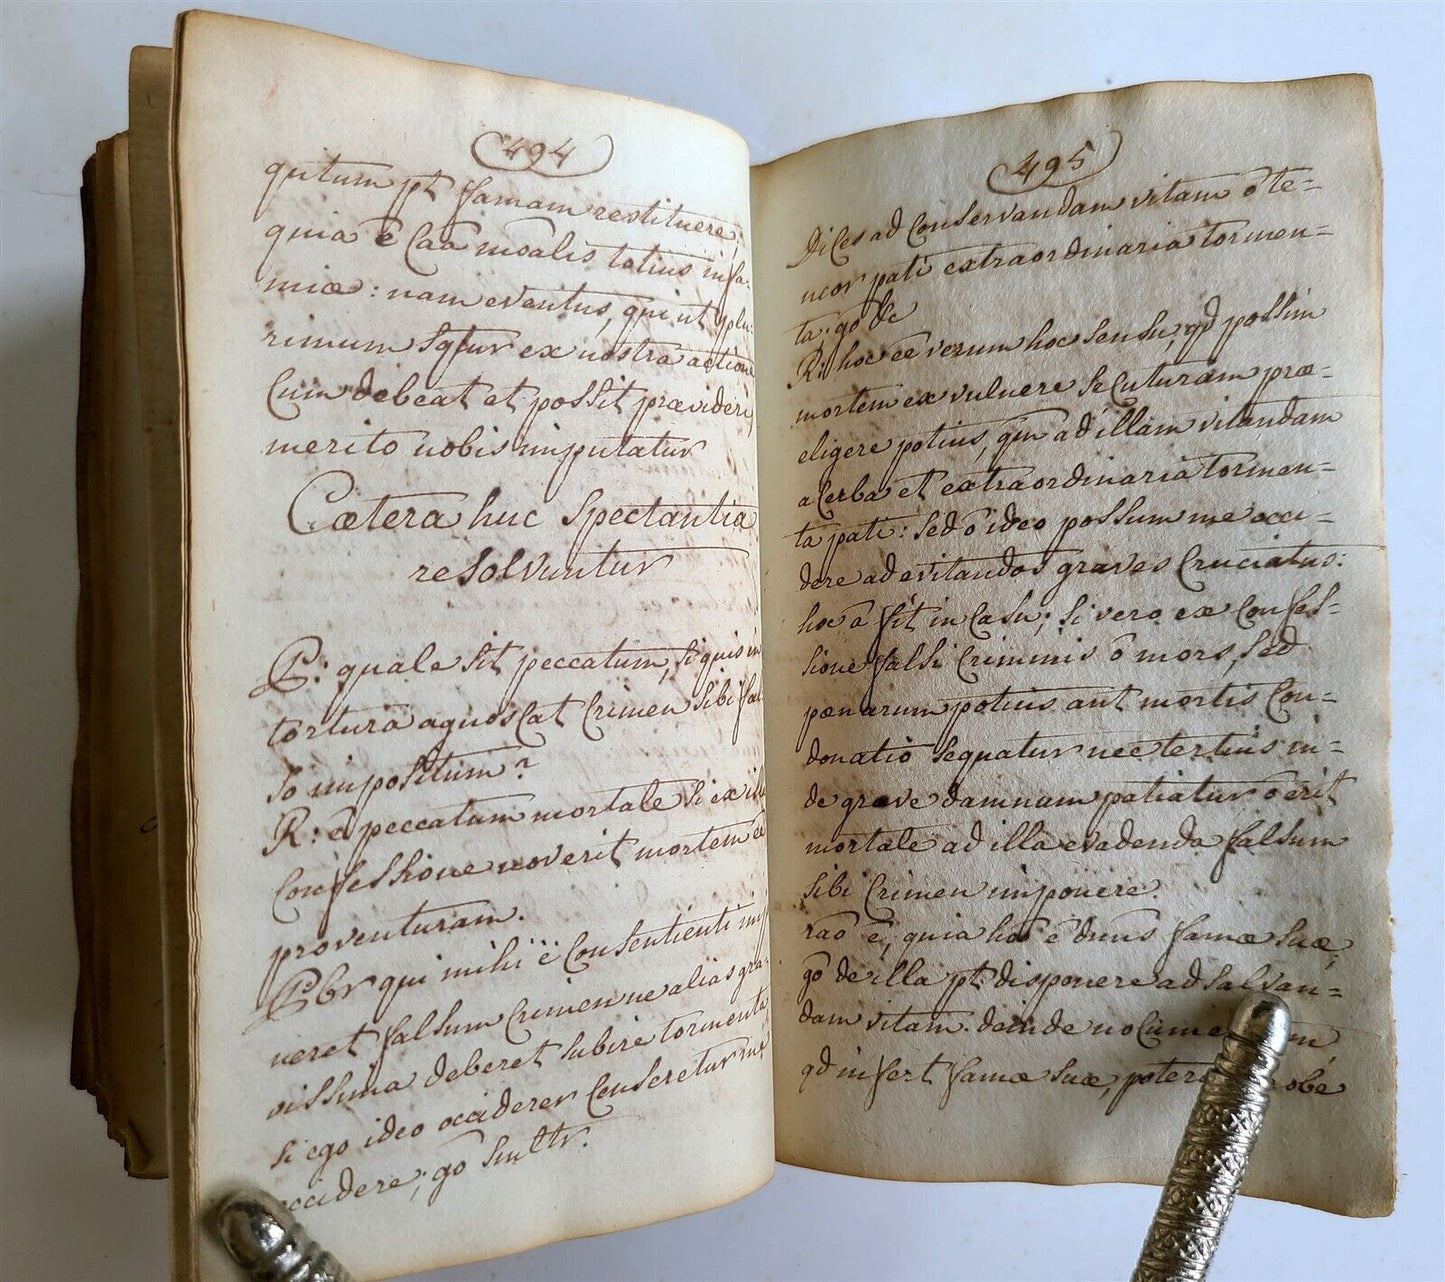 494
qutum pt famam restituere:
quia ē Caā moralis totius infa-
miæ: nam eventus, qui ut plu-
rimum sqtur ex nostra actione
Cum debeat et possit prævideri,
merito nobis imputatur
Cætera huc Spectantia
resolvuntur
P: quale sit peccatum, si quis in
tortura agnoscat Crimen sibi fal
so impositum?
R: ē peccatum mortale si ex illa
Confessione noverit mortem ei
proventuram.
Pbr qui mihi Consentienti im
neret falsum Crimen ne alias gra-
vissima deberet subire tormenta
si ego ideo occiderer Censeretur me
occidere; gō
495
Dices ad Conservandam vitam ō te-
neor pati extraordinaria tormen-
ta; gō &c
R: hoc eē verum hoc sensu, qd possim
mortem ex vulnere secuturam præ-
eligere potius, qm ad illam vitandam
acerba et extraordinaria tormen-
ta pati: sed ō ideo possum me occi-
dere ad evitandos graves Cruciatus:
hoc ā fit in Casu; si vero ex Confes-
sione falsi Criminis ō mors, sed
pœnarum potius aut mortis Con-
donatio sequatur nec tertius in-
de grave damnum patiatur ō erit
mortale ad illa evadenda falsum
sibi Crimen imponere.
raō ē, quia hōc ē dnus famæ suæ,
gō de illa pt disponere ad salvan-
dam vitam. deinde
qd infert famæ suæ,